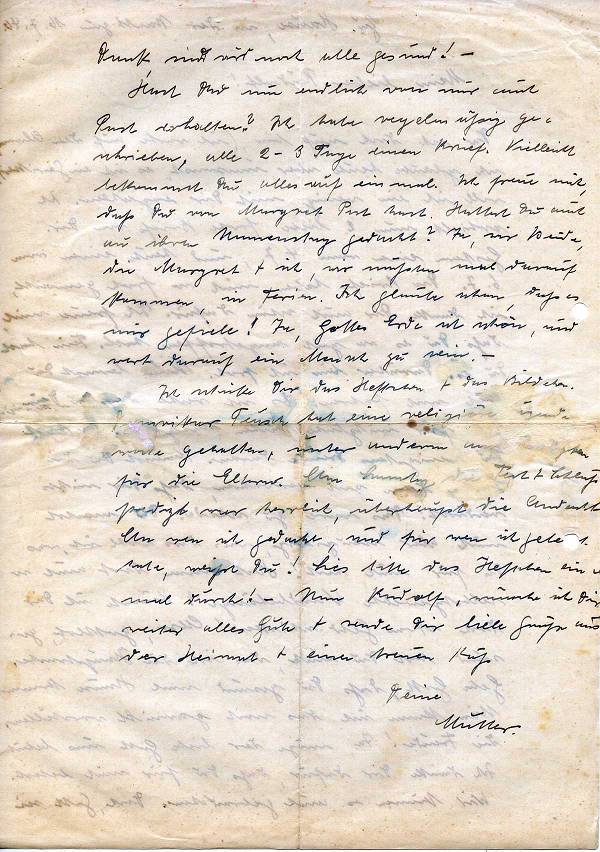 Dank sind wir noch alle gesund! –
Hast Du nun endlich von mir mal
Post erhalten? Ich habe regelmäßig ge-
schrieben, alle 2–3 Tage einen Brief. Vielleicht
bekommst Du alles auf einmal. Ich freue mich,
daß Du von Margret Post hast. Hattest Du auch
an ihren Namenstag gedacht? Ja, wir Beide,
die Margret + ich, wir müßten mal darauf
kommen, in Ferien. Ich glaube schon, daß es
mir gefiele! Ja, Gottes Erde ist schön, und
wert darauf ein Mensch zu sein. –
Ich schicke Dir das Heftchen + das Bildchen.
Teusch hat eine religiöse
woche gehalten, unter anderem
für die Eltern. Am Sonntag die Fest + Schluß
predigt war herrlich, überhaupt die Andacht
An wen ich gedacht, und für wen ich gebetet
habe, weißt Du! Lies bitte das Heftchen ein
mal durch! – Nun Rudolf, wünsche ich Dir
weiter alles Gute + sende Dir liebe Grüße aus
der Heimat + einen treuen Kuß
Deine
Mutter.